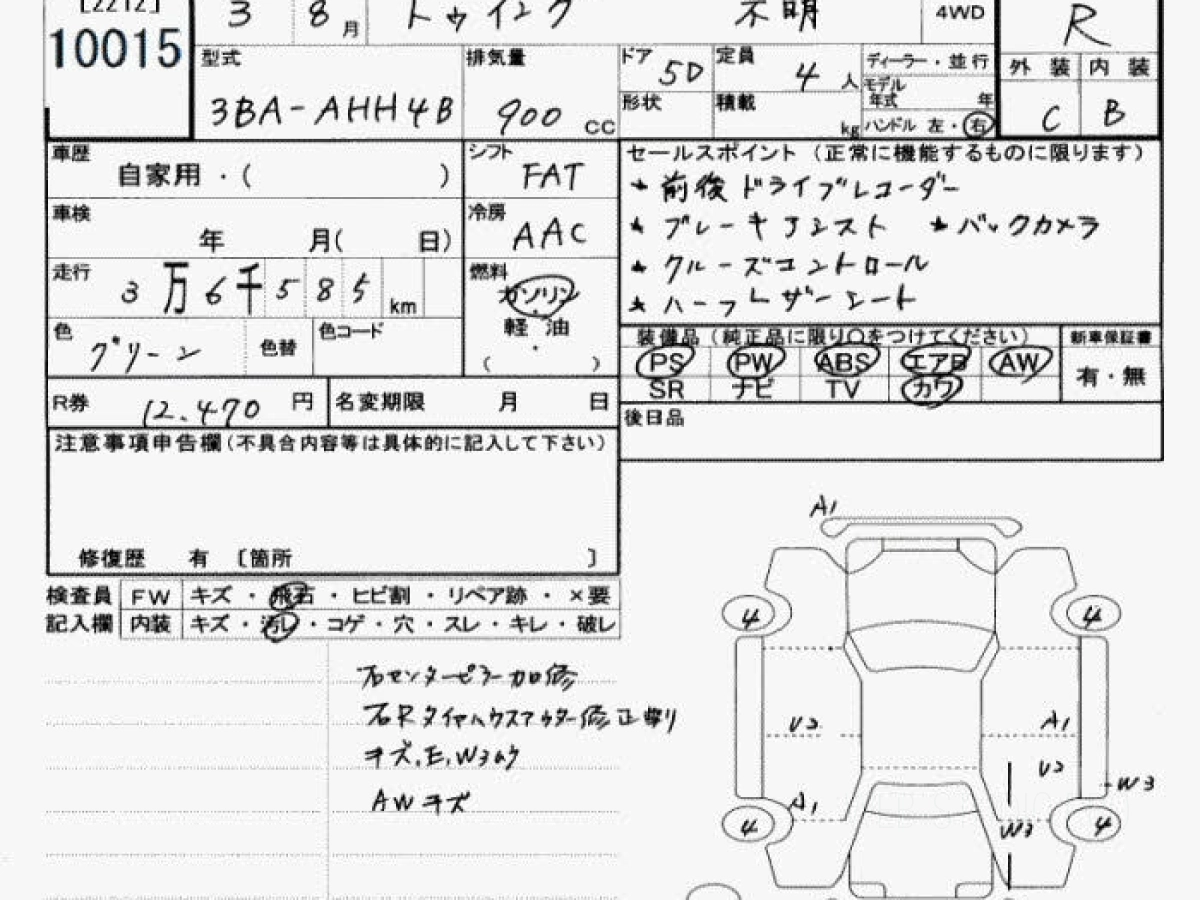 [2212]
10015
3 8 月 トゥインゴ 不明 4WD R
型式 3BA-AHH4B
排気量 900 CC
ドア 5D 定員 4 人
形状 積載 kg
ディーラー・並行
モデル年式 年
ハンドル 左・右
外装 内装
C B
車歴 自家用・( )
シフト FAT
車検 年 月( 日)
冷房 AAC
走行 3 万 6 千 5 8 5 km
燃料 ガソリン
軽・油
( )
色 グリーン 色替 色コード
R券 12.470 円 名変期限 月 日
セールスポイント（正常に機能するものに限ります）
★ 前後ドライブレコーダー
★ ブレーキアシスト ★ バックカメラ
★ クルーズコントロール
★ ハーフレザーシート
装備品（純正品に限り〇をつけてください） 新車保証書
PS PW ABS エアB AW 有・無
SR ナビ TV カワ
後日品
注意事項申告欄（不具合内容等は具体的に記入して下さい）
修復歴 有 〔箇所 〕
検査員 FW キズ・飛石・ヒビ割・リペア跡・×要
記入欄 内装 キズ・汚し・コゲ・穴・スレ・キレ・破レ
右センターピラー加修
右Rタイヤハウスアウター修正
キズ、E、W3
AWキズ
A1
4 4
U2 A1
U2 W3
A1
4 W3 4